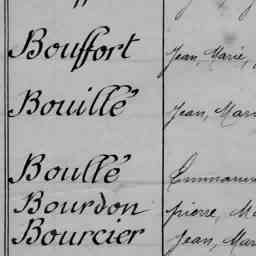 Bouffort Jean, Marie,
Bouillé Jean, Mar
Boullé
Bourdon pierre, Ma
Bourcier Jean, Mar